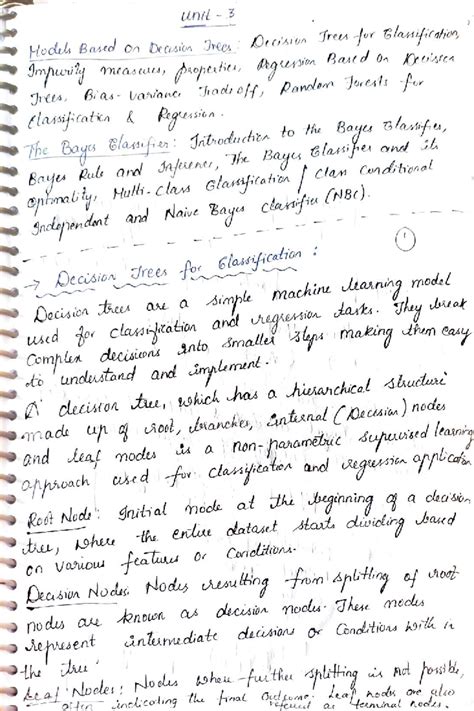 Unit - 3
Models Based on Decision Trees: Decision Trees for Classification,
Impurity measures, properties, Regression Based on Decision
Trees, Bias-Variance Trade off, Random Forests for
Classification & Regression.
The Bayes Classifier: Introduction to the Bayes Classifier,
Bayes Rule and Inference, The Bayes Classifier and its
Optimality, Multi-Class Classification / Class Conditional
Independent and Naive Bayes classifier (NBC).
1
→ Decision Trees for Classification :
Decision trees are a simple machine learning model
used for classification and regression tasks. They break
Complex decisions into smaller steps making them easy
to understand and implement.
A decision tree, which has a hierarchical structure
made up of root, branches, internal (Decision) nodes
and leaf nodes is a non-parametric supervised learning
approach used for classification and regression application
Root Node: Initial node at the beginning of a decision
tree, where the entire dataset starts dividing based
on various features or Conditions.
Decision Nodes: Nodes resulting from splitting of root
nodes are known as decision nodes. These nodes
represent intermediate decisions or Conditions with in
the tree.
Leaf Nodes: Nodes where further splitting is not possible,
often indicating the final outcome. Leaf nodes are also
referred as terminal nodes.